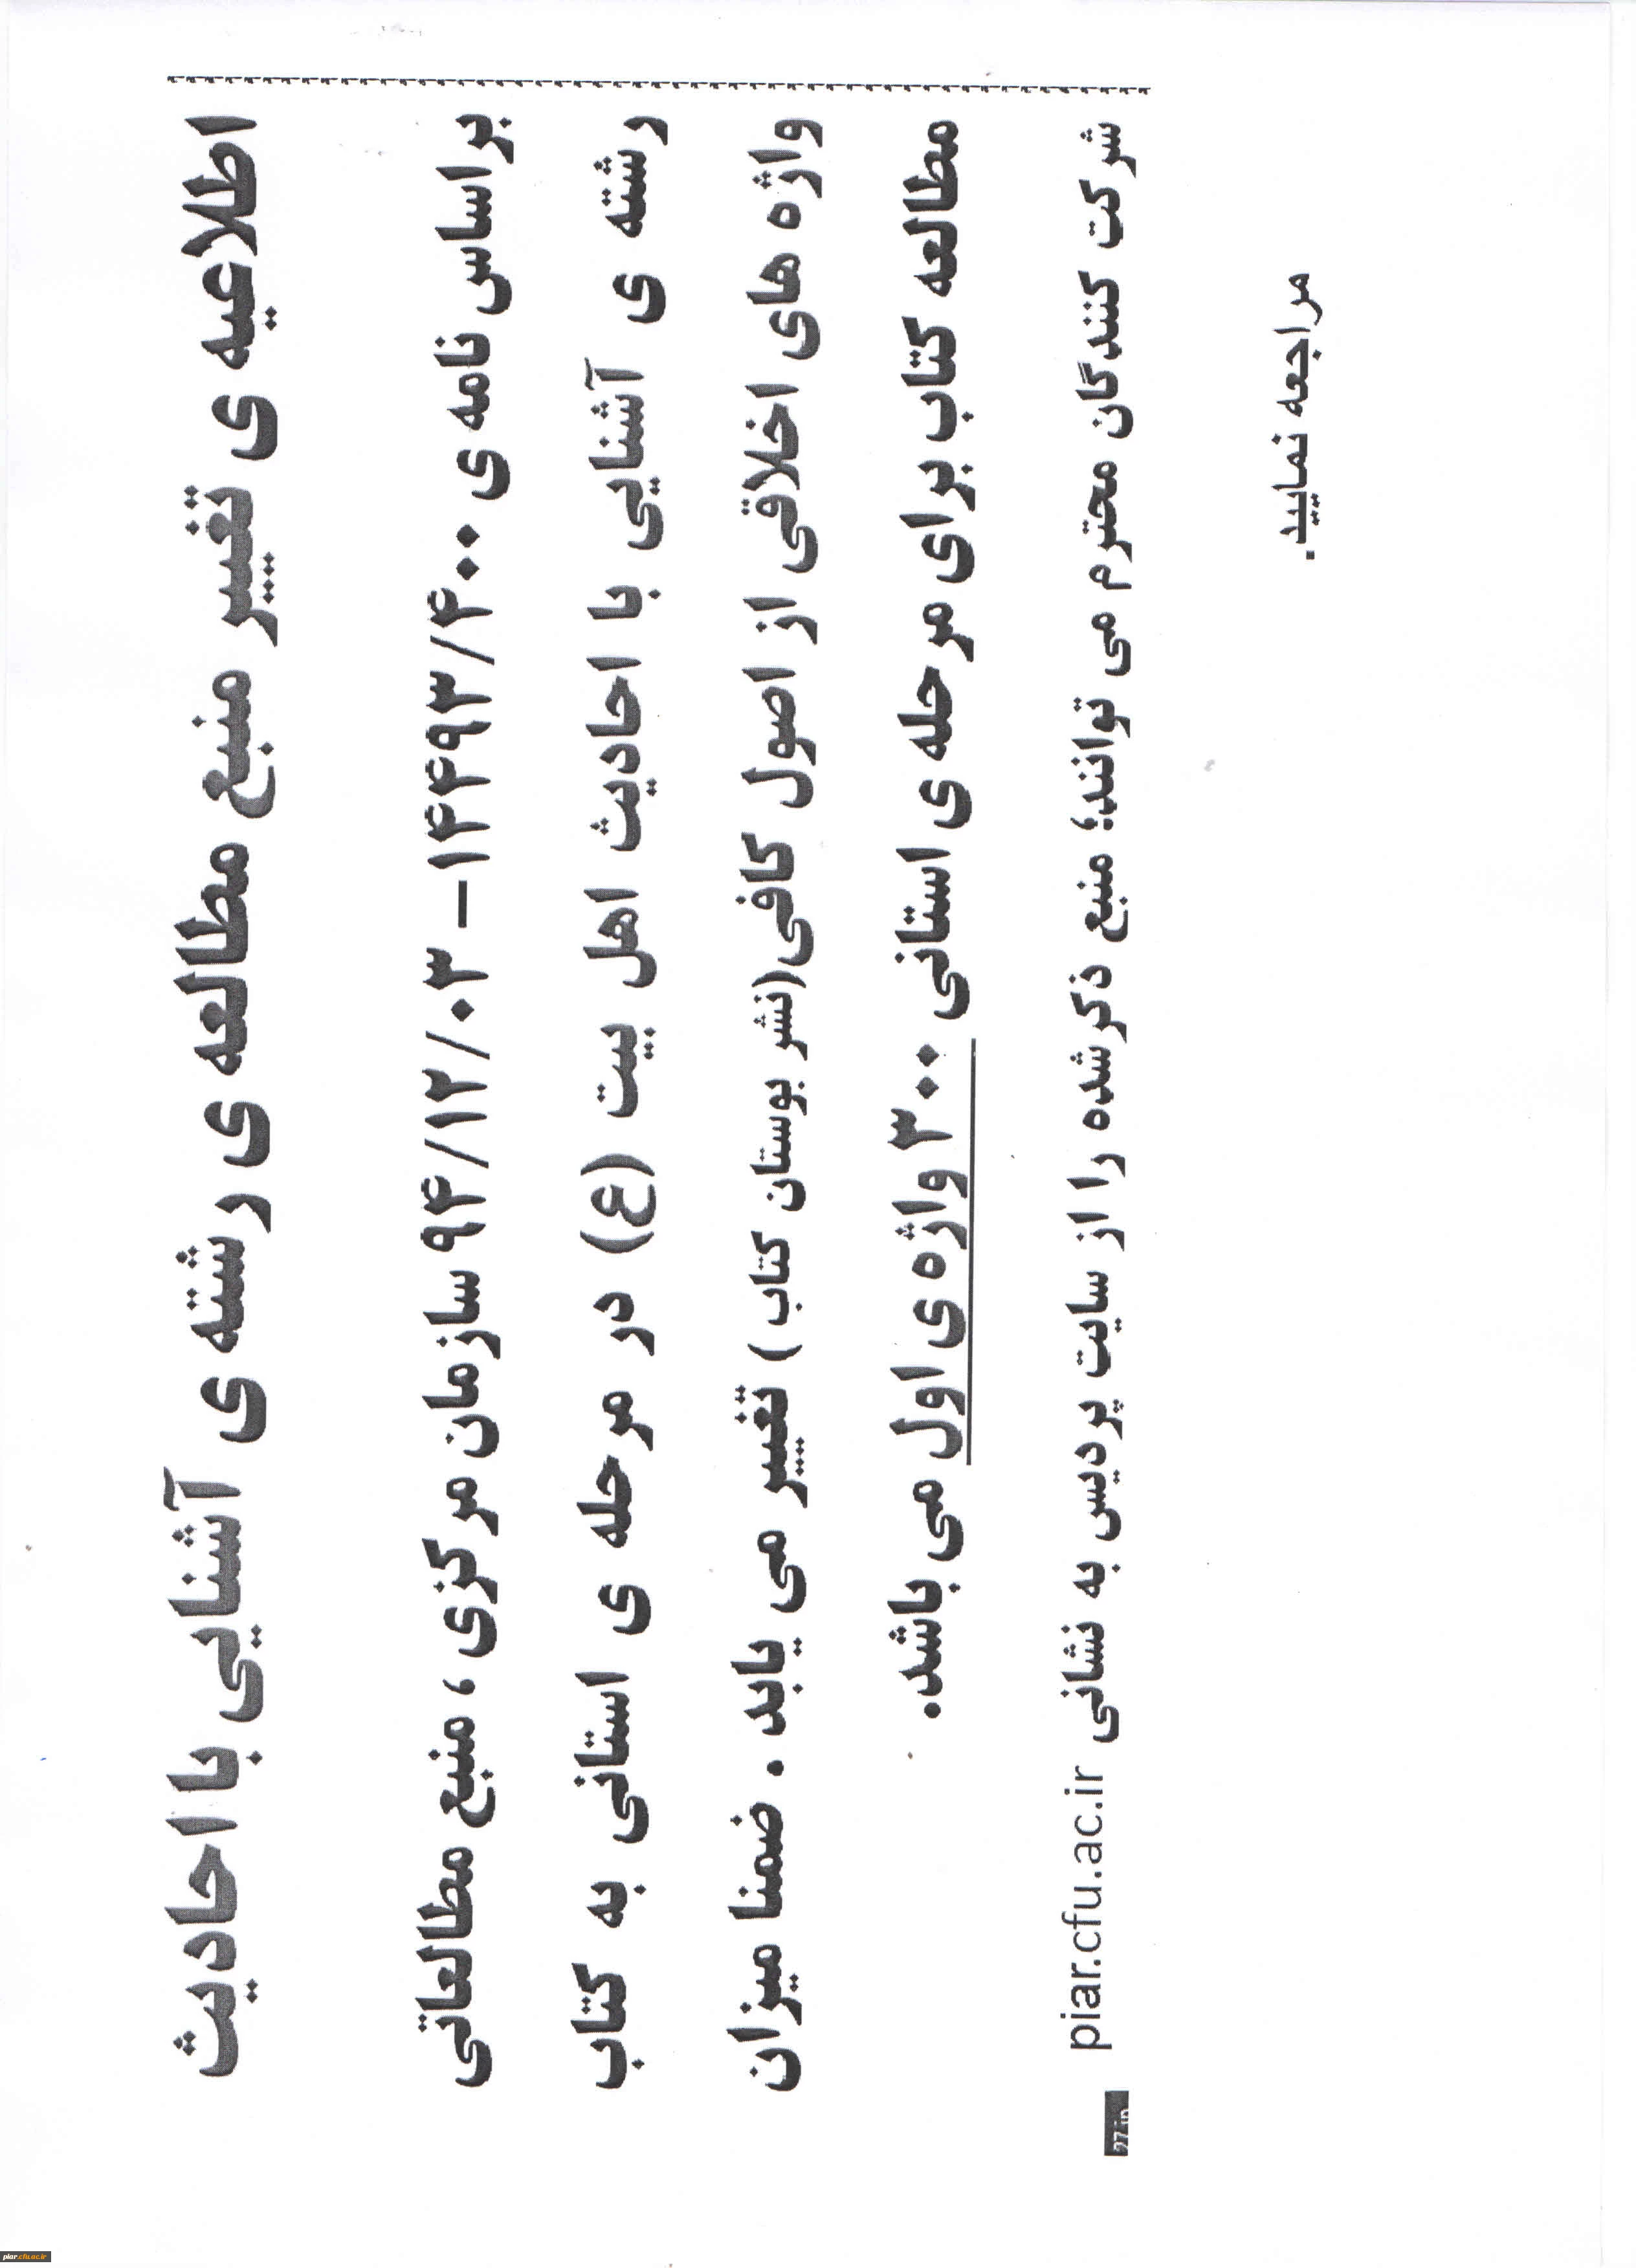 اطلاعیه ی تغییر منبع مطالعه ی رشته ی آشنایی با احادیث
بر اساس نامه ی ۱۴۴۹۳/۴۰۰–۹۴/۱۲/۰۳ سازمان مرکزی ، منبع مطالعاتی
رشته ی آشنایی با احادیث اهل بیت (ع) در مرحله ی استانی به کتاب
واژه های اخلاقی از اصول کافی(نشر بوستان کتاب ) تغییر می یابد . ضمنا میزان
مطالعه کتاب برای مرحله ی استانی ۳۰۰ واژه ی اول می باشد.
شرکت کنندگان محترم می توانند؛ منبع ذکر شده را از سایت پردیس به نشانی piar.cfu.ac.ir
مراجعه نمایید.
piar.cfu.ac.ir